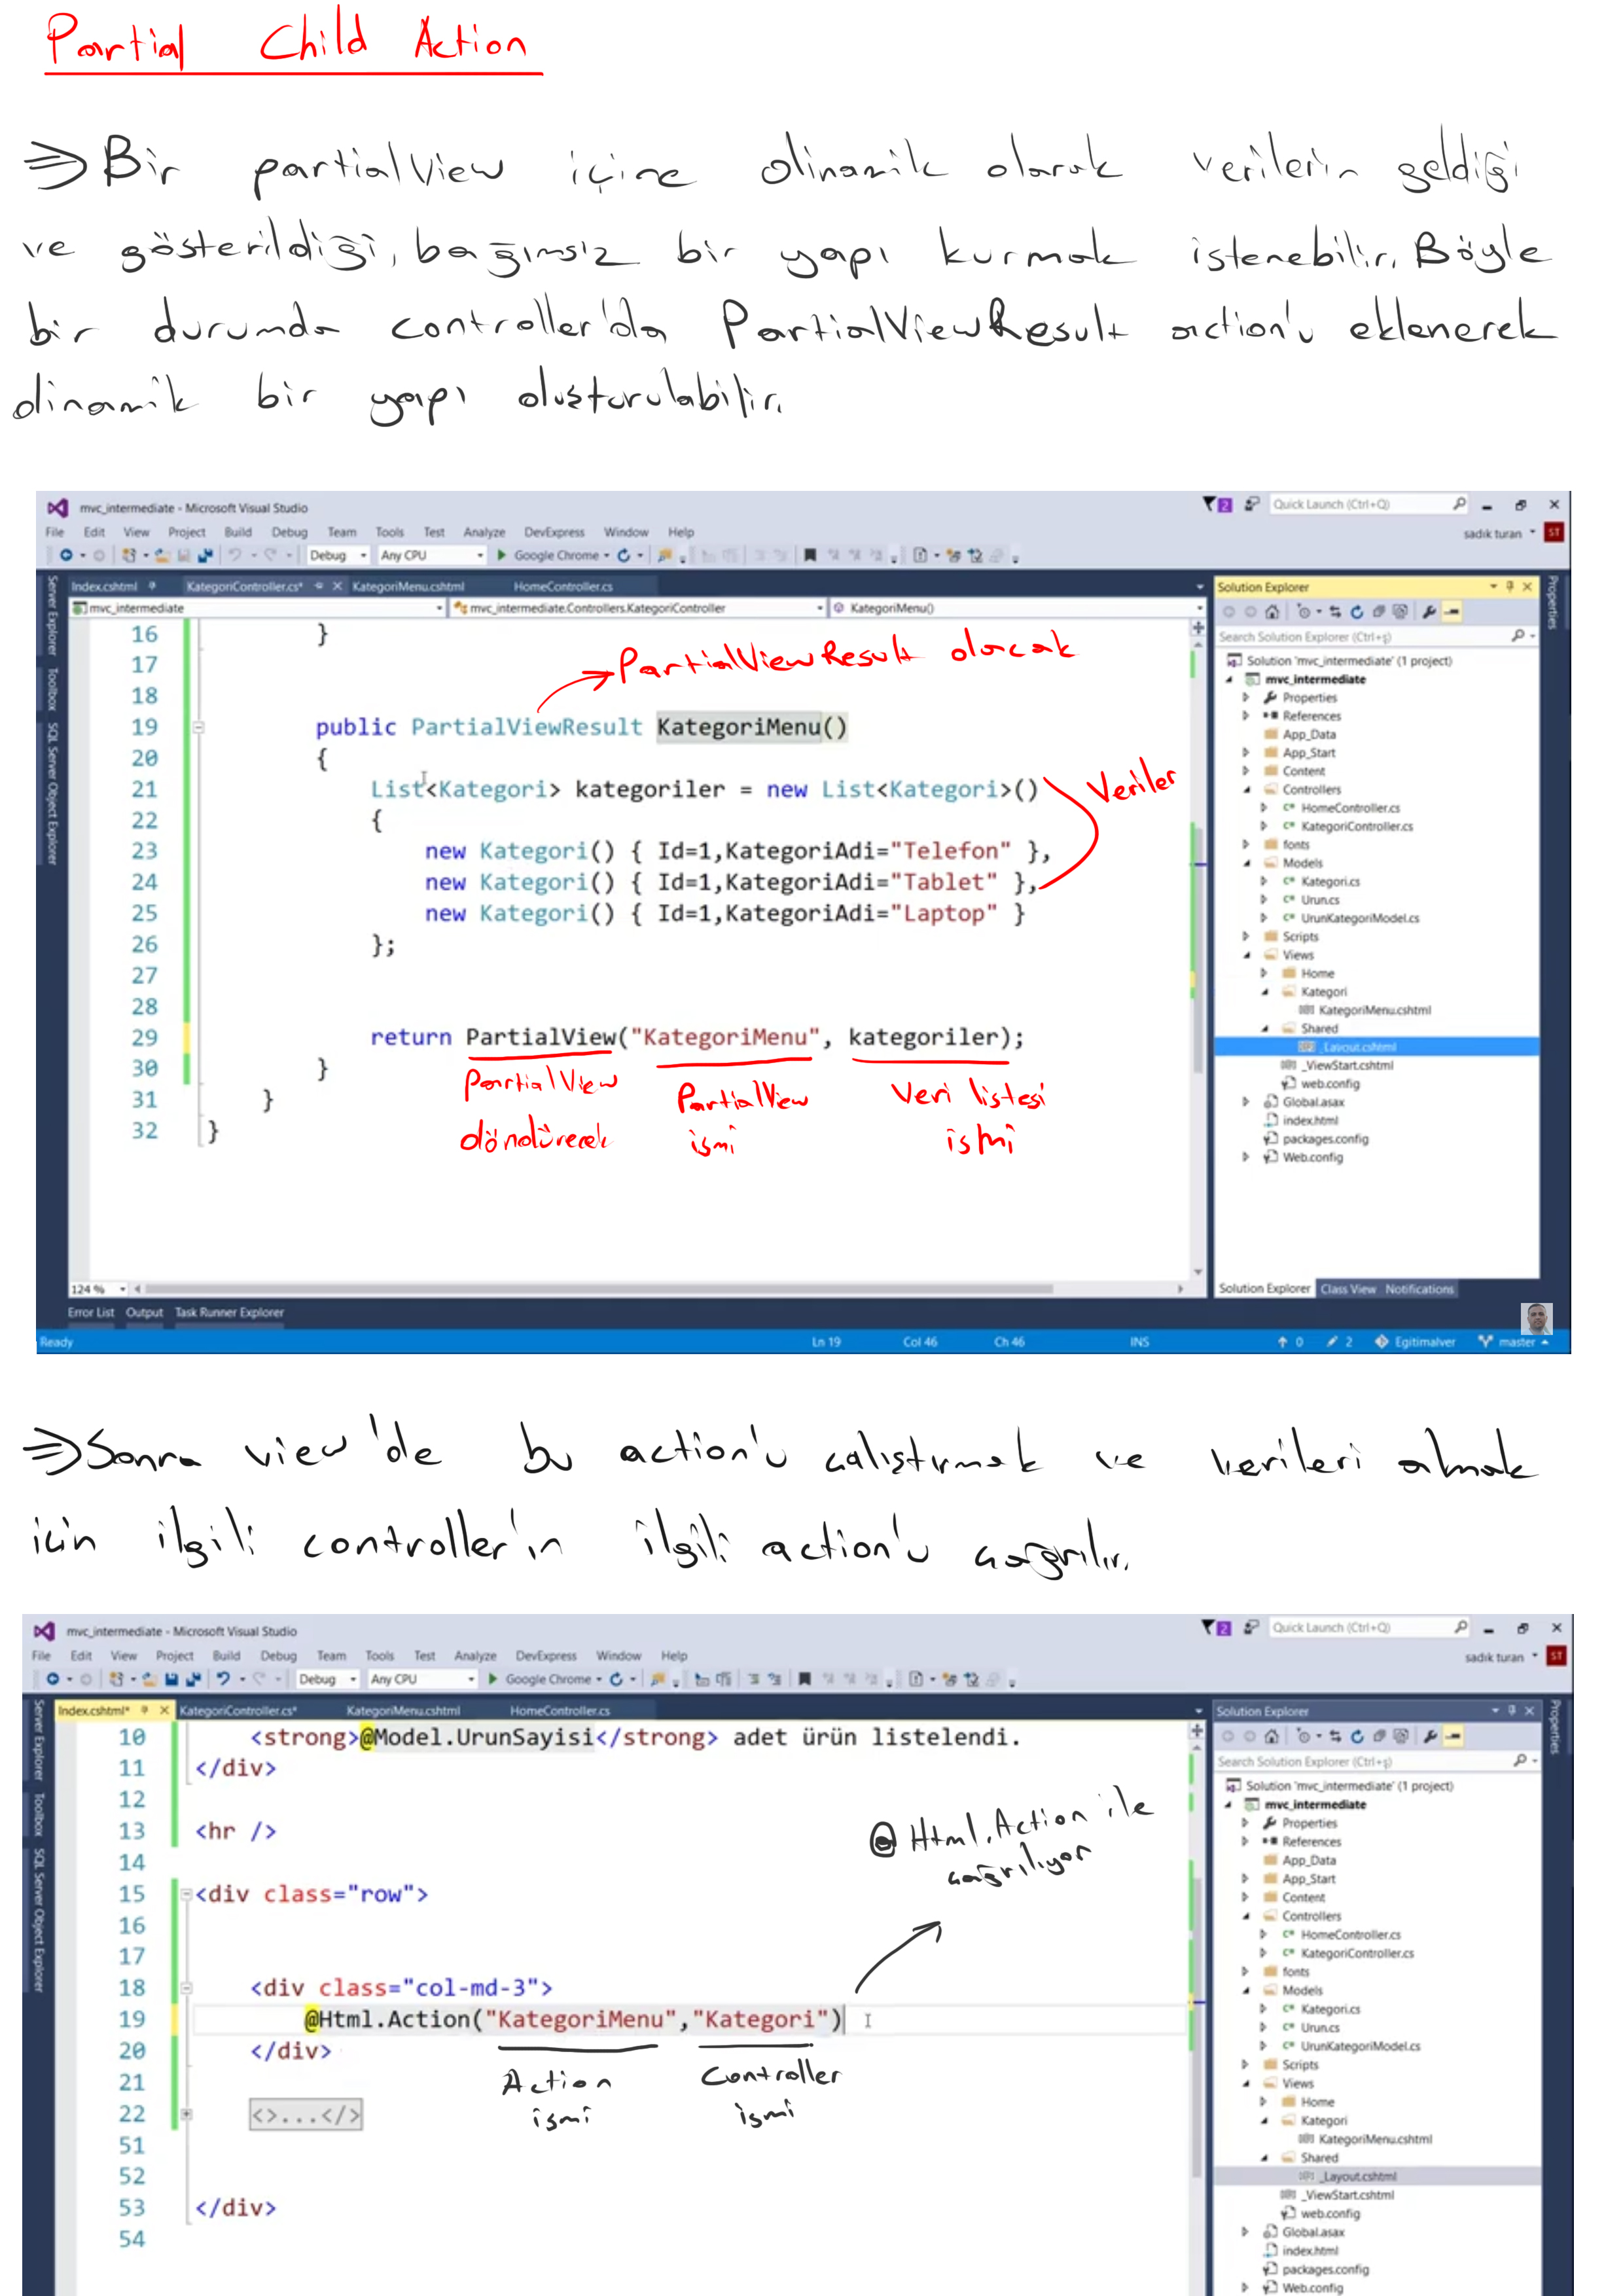 Partial Child Action
⇒ Bir partialView içine dinamik olarak verilerin geldiği
ve gösterildiği, bağımsız bir yapı kurmak istenebilir. Böyle
bir durumda controller'da PartialViewResult action'u eklenerek
dinamik bir yapı oluşturulabilir.
mvc_intermediate - Microsoft Visual Studio
Quick Launch (Ctrl+Q)
File Edit View Project Build Debug Team Tools Test Analyze DevExpress Window Help
sadık turan ST
Debug Any CPU Google Chrome
Server Explorer Toolbox SQL Server Object Explorer
Index.cshtml KategoriController.cs* KategoriMenu.cshtml HomeController.cs
mvc_intermediate mvc_intermediate.Controllers.KategoriController KategoriMenu()
16 }
17
→ PartialViewResult olacak
18
19 public PartialViewResult KategoriMenu()
20 {
21 List<Kategori> kategoriler = new List<Kategori>()
Veriler
22 {
23 new Kategori() { Id=1,KategoriAdi="Telefon" },
24 new Kategori() { Id=1,KategoriAdi="Tablet" },
25 new Kategori() { Id=1,KategoriAdi="Laptop" }
26 };
27
28
29 return PartialView("KategoriMenu", kategoriler);
30 }
31 }
32 }
PartialView
döndürecek
PartialView
ismi
Veri listesi
ismi
124 %
Error List Output Task Runner Explorer
Ready Ln 19 Col 46 Ch 46 INS 0 2 Egitimalver master
Solution Explorer
Properties
Search Solution Explorer (Ctrl+ş)
Solution 'mvc_intermediate' (1 project)
mvc_intermediate
Properties
References
App_Data
App_Start
Content
Controllers
C# HomeController.cs
C# KategoriController.cs
fonts
Models
C# Kategori.cs
C# Urun.cs
C# UrunKategoriModel.cs
Scripts
Views
Home
Kategori
KategoriMenu.cshtml
Shared
_Layout.cshtml
_ViewStart.cshtml
web.config
Global.asax
index.html
packages.config
Web.config
Solution Explorer Class View Notifications
⇒ Sonra view'de bu action'u çalıştırmak ve verileri almak
için ilgili controller'ın ilgili action'u çağrılır.
mvc_intermediate - Microsoft Visual Studio
Quick Launch (Ctrl+Q)
File Edit View Project Build Debug Team Tools Test Analyze DevExpress Window Help
sadık turan ST
Debug Any CPU Google Chrome
Server Explorer Toolbox SQL Server Object Explorer
Index.cshtml* KategoriController.cs* KategoriMenu.cshtml HomeController.cs
10 <strong>@Model.UrunSayisi</strong> adet ürün listelendi.
11 </div>
12
13 <hr />
@Html.Action ile
çağrılıyor
14
15 <div class="row">
16
17
18 <div class="col-md-3">
19 @Html.Action("KategoriMenu","Kategori")
20 </div>
21
22 <>...</>
Action
ismi
Controller
ismi
51
52
53 </div>
54
Solution Explorer
Properties
Search Solution Explorer (Ctrl+ş)
Solution 'mvc_intermediate' (1 project)
mvc_intermediate
Properties
References
App_Data
App_Start
Content
Controllers
C# HomeController.cs
C# KategoriController.cs
fonts
Models
C# Kategori.cs
C# Urun.cs
C# UrunKategoriModel.cs
Scripts
Views
Home
Kategori
KategoriMenu.cshtml
Shared
_Layout.cshtml
_ViewStart.cshtml
web.config
Global.asax
index.html
packages.config
Web.config